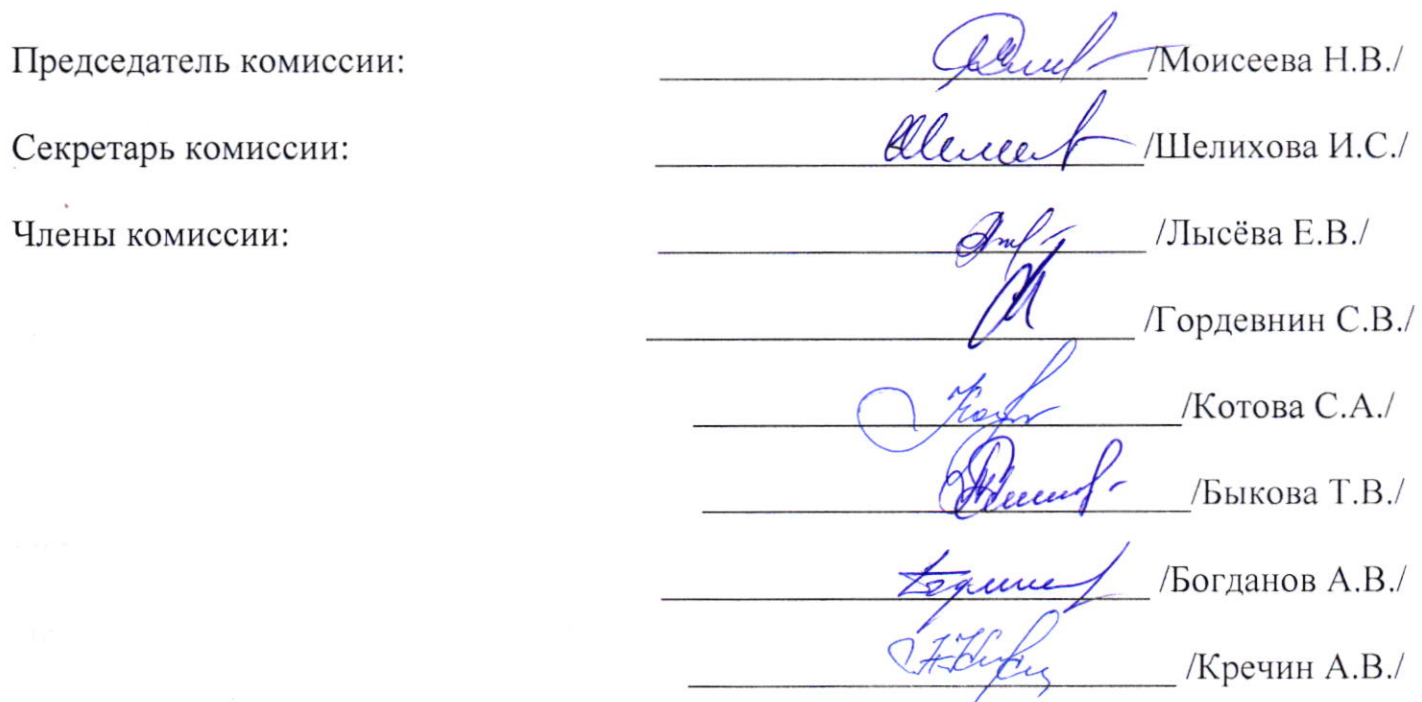 Председатель комиссии: /Моисеева Н.В./
Секретарь комиссии: /Шелихова И.С./
Члены комиссии: /Лысёва Е.В./
/Гордевнин С.В./
/Котова С.А./
/Быкова Т.В./
/Богданов А.В./
/Кречин А.В./